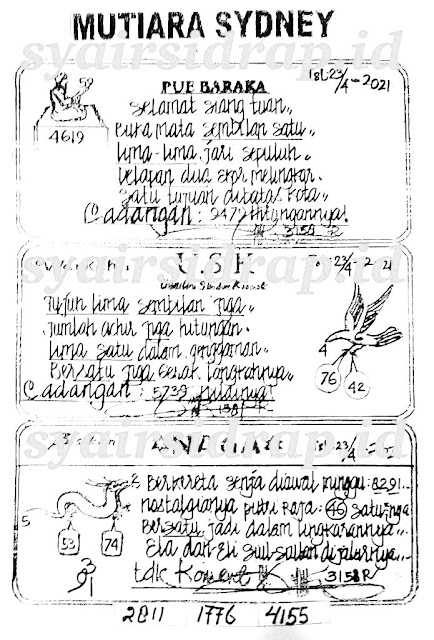 MUTIARA SYDNEY
syairsidrap.id
PUE BARAKA
Tgl: 23/4-2021
59
4619
Selamat siang tuan,,
Buka mata sembilan satu,,
Lima-lima jari sepuluh.
Delapan dua ekor melingkar.
Satu tujuan dibatas kota,,
Cadangan: 9472 Hitungannya!
3158-R
syairsidrap.id
U.S.K
Tgl: 23/4-2021
Tujuh lima sembilan juga
Jumlah akhir juga hitungan.
Lima satu dalam genggaman.
Bersatu juga gerak langkahnya,,
Cadangan: 5739
4
76
42
syairsidrap.id
23/4
Berkereta senja diawal minggu: 8291...
nostalgianya putri raja: 46 satu juga
Bersatu jadi dalam lingkarannya..
Ela dan Eli
5
53
74
tdk
3158R
2811 1776 4155